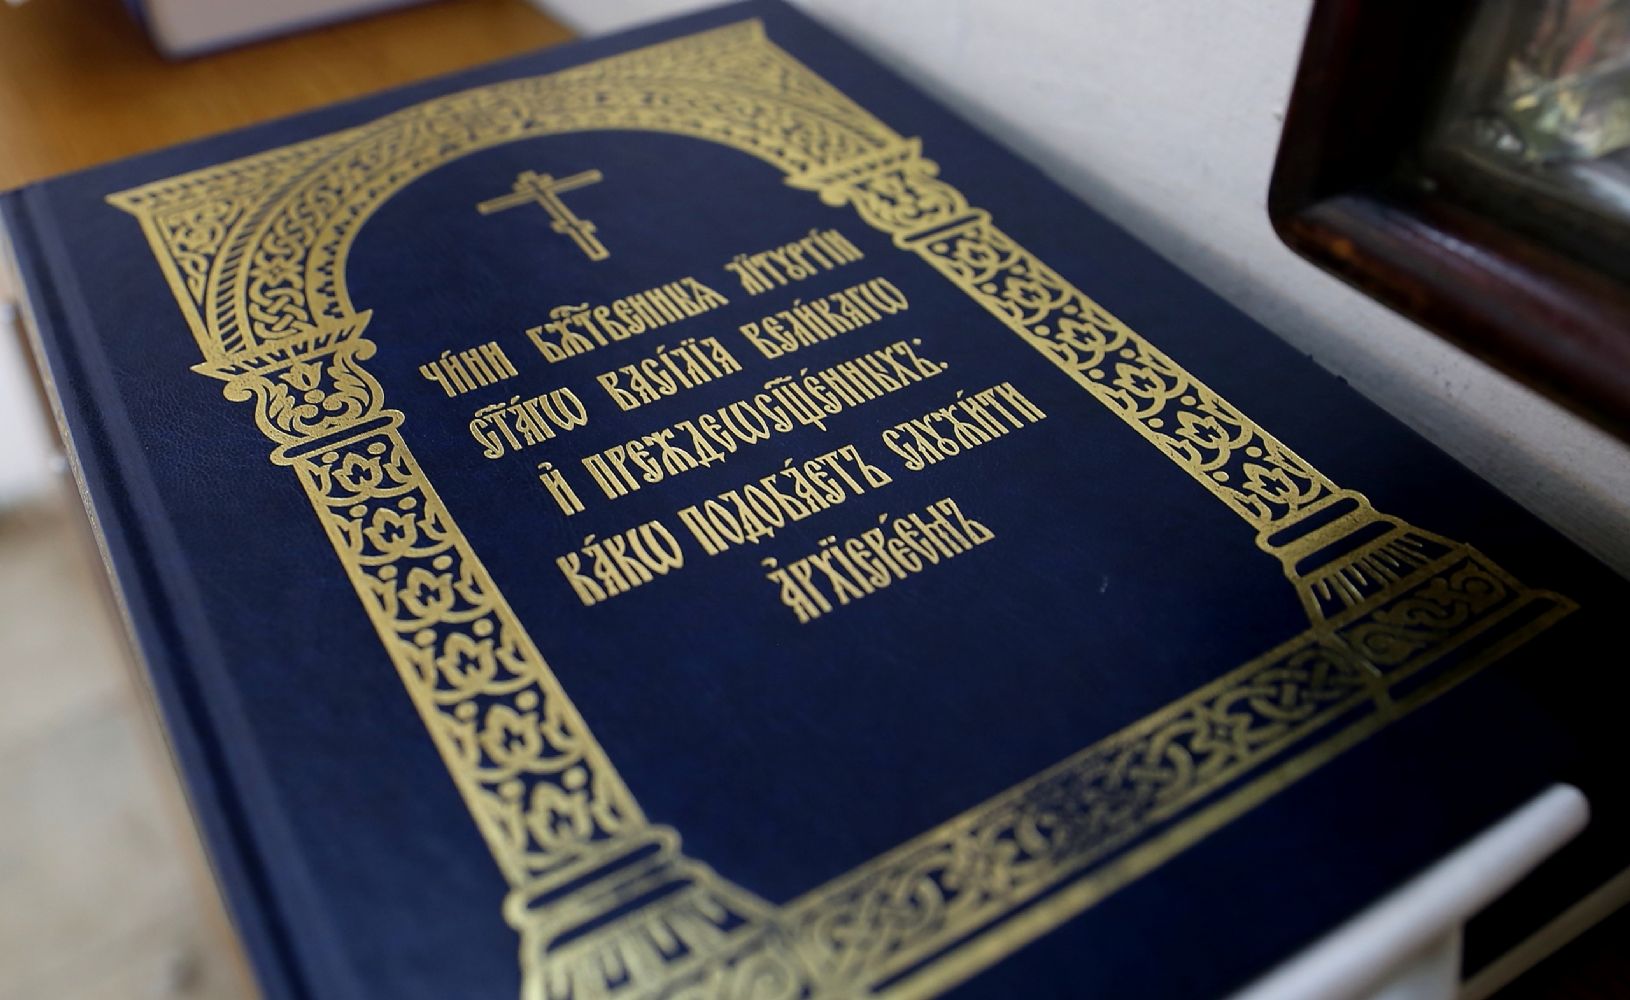 Чи́ни бж҃твенныѧ лїтꙋргі́и
ст҃а́гѡ васі́лїа вели́кагѡ
и҆ преждеѡсщ҃е́нныхъ:
ка́кѡ подоба́етъ слꙋжи́ти
а҆рхїере́ємъ